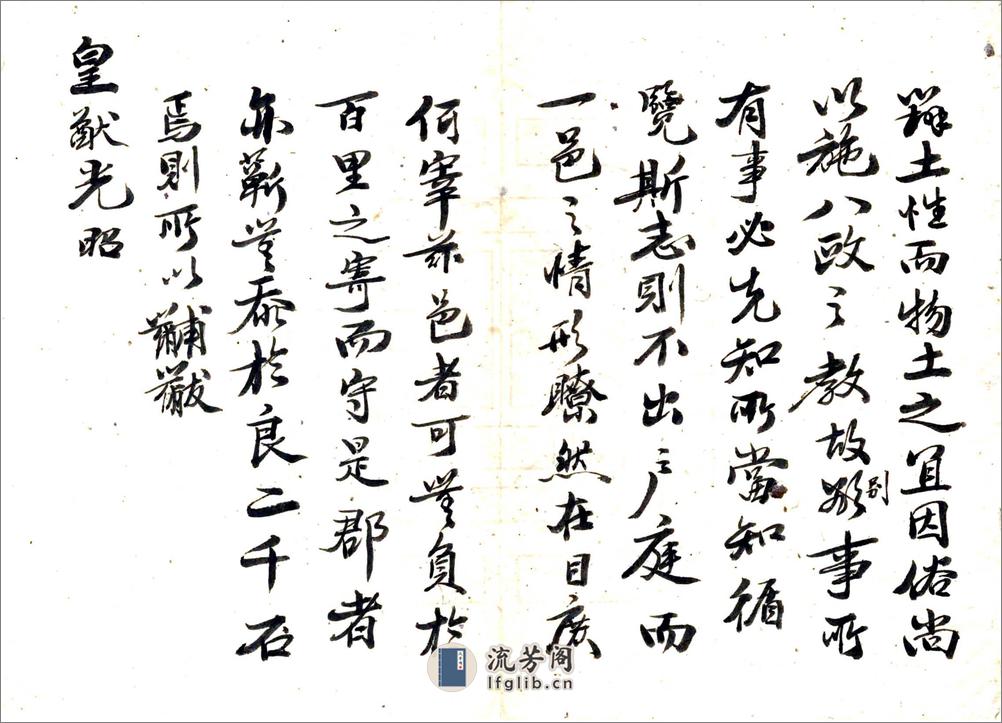 辨土性而物土之宜因俗尚
以施八政之教故别類事所
有事必先知所當知循
覽斯志則不出之户庭而
一邑之情形瞭然在目庶
何宰茲邑者可無負於
百里之寄而守是郡者
亦蘄無忝於良二千石
焉則所以黼黻
皇猷光昭
流芳阁
lfglib.cn